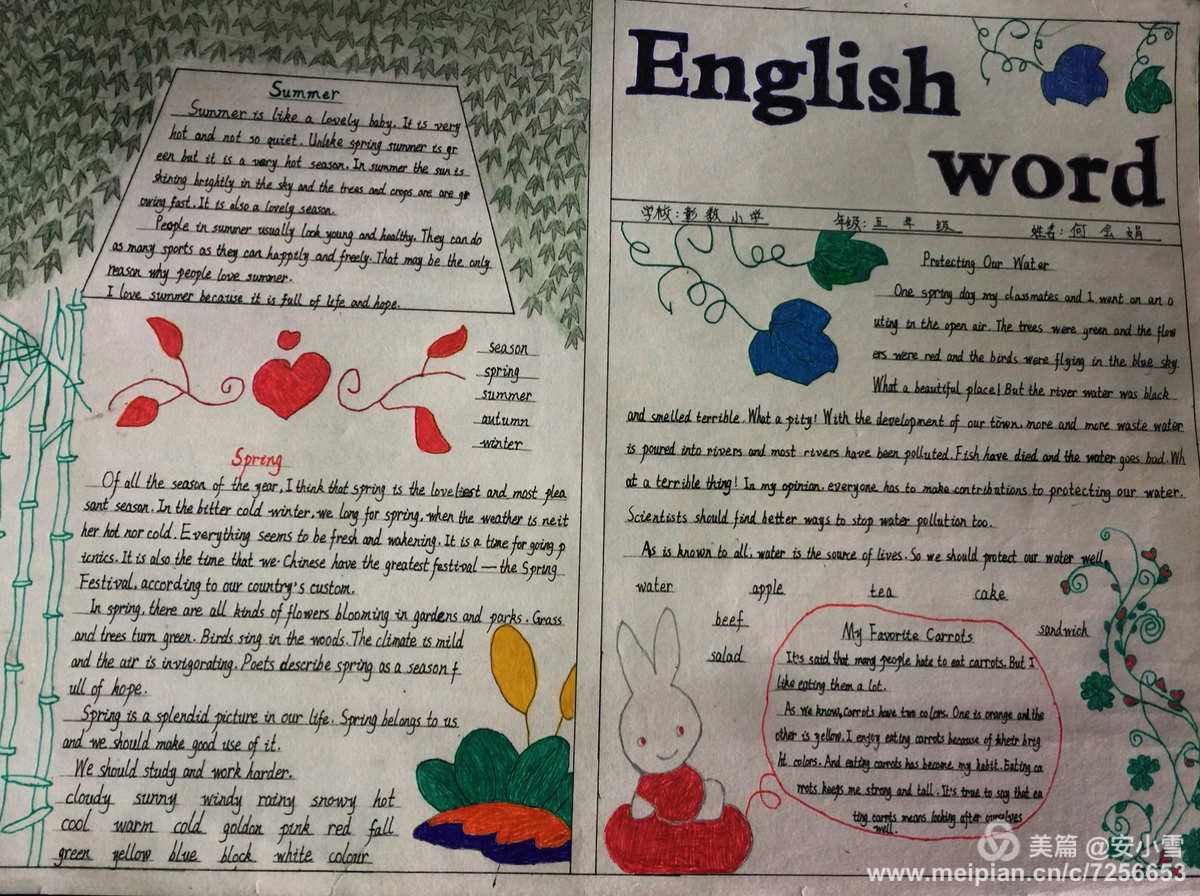 Summer
Summer is like a lovely baby. It is very
hot and not so quiet. Unlike spring summer is gr
een but it is a very hot season. In summer the sun is
shining brightly in the sky and the trees and crops are are gr
owing fast. It is also a lovely season.
People in summer usually look young and healthy. They can do
as many sports as they can happily and freely. That may be the only
reason why people love summer.
I love summer because it is full of life and hope.
season
spring
summer
autumn
winter
Spring
Of all the season of the year, I think that spring is the loveliest and most plea
sant season. In the bitter cold winter, we long for spring, when the weather is neit
her hot nor cold. Everything seems to be fresh and wakening. It is a time for going p
icnics. It is also the time that we Chinese have the greatest festival — the Spring
Festival, according to our country's custom.
In spring, there are all kinds of flowers blooming in gardens and parks. Grass
and trees turn green. Birds sing in the woods. The climate is mild
and the air is invigorating. Poets describe spring as a season f
ull of hope.
Spring is a splendid picture in our life. Spring belongs to us
and we should make good use of it.
We should study and work harder.
cloudy sunny windy rainy snowy hot
cool warm cold goldon pink red fall
green yellow blue block white colour
English
word
学校: 彰教小学 年级: 五年级 姓名: 何会娟
Protecting Our Water
One spring day my classmates and I went on an o
uting in the open air. The trees were green and the flow
ers were red and the birds were flying in the blue sky.
What a beautiful place! But the river water was black
and smelled terrible. What a pity! With the development of our town, more and more waste water
is poured into rivers and most rivers have been polluted. Fish have died and the water goes bad. Wh
at a terrible thing! In my opinion, everyone has to make contributions to protecting our water.
Scientists should find better ways to stop water pollution too.
As is known to all, water is the source of lives. So we should protect our water well.
water apple tea cake
beef
sandwich
salad
My Favorite Carrots
It's said that many people hate to eat carrots. But I
like eating them a lot.
As we know, carrots have two colors. One is orange and the
other is yellow. I enjoy eating carrots because of their brig
ht colors. And eating carrots has become my habit. Eating ca
rrots keeps me strong and tall. It's true to say that ea
ting carrots means looking after ourselves
well.
美篇 @安小雪
www.meipian.cn/c/7256653